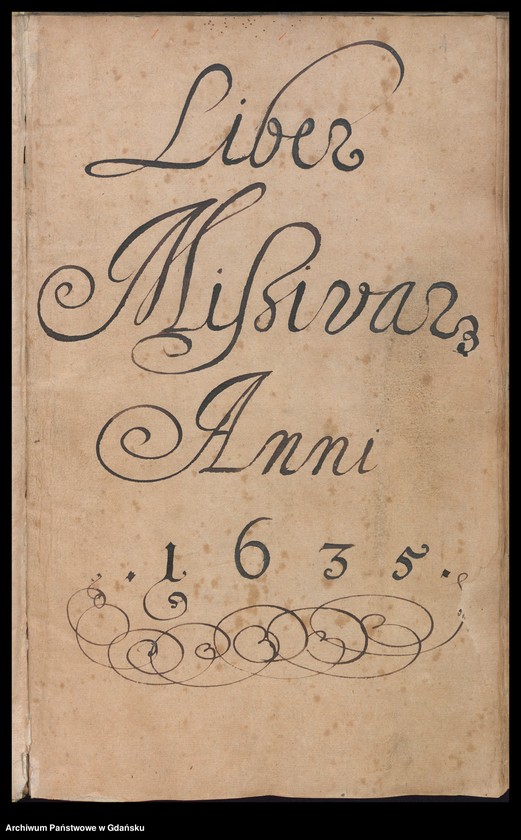 Liber
Missivarꝝ
Anni
.1635.
Archiwum Państwowe w Gdańsku